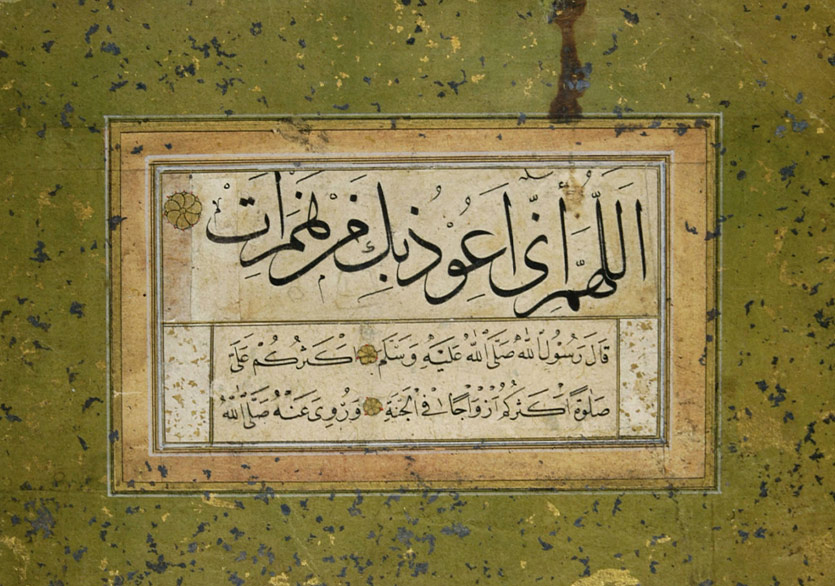 اَللّٰهُمَّ أَنّى اَعُوْذُ بِكَ مِنْ هَمَزَاتِ
قَالَ رَسُوْلُ اللّٰهِ صَلَّى اللّٰهُ عَلَيْهِ وَسَلَّمَ اَكْثَرُكُمْ عَلَىَّ
صَلٰوةً اَكْثَرُكُمْ اَزْوَاجًا فِى الْجَنَّةِ وَرُوِىَ عَنْهُ صَلَّى اللّٰهُ